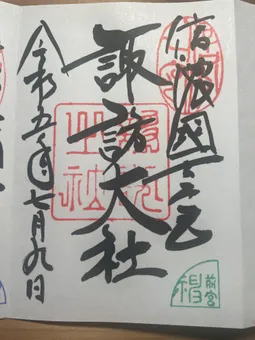 信濃國一之宮
諏訪大社
令和五年七月九日
前宮